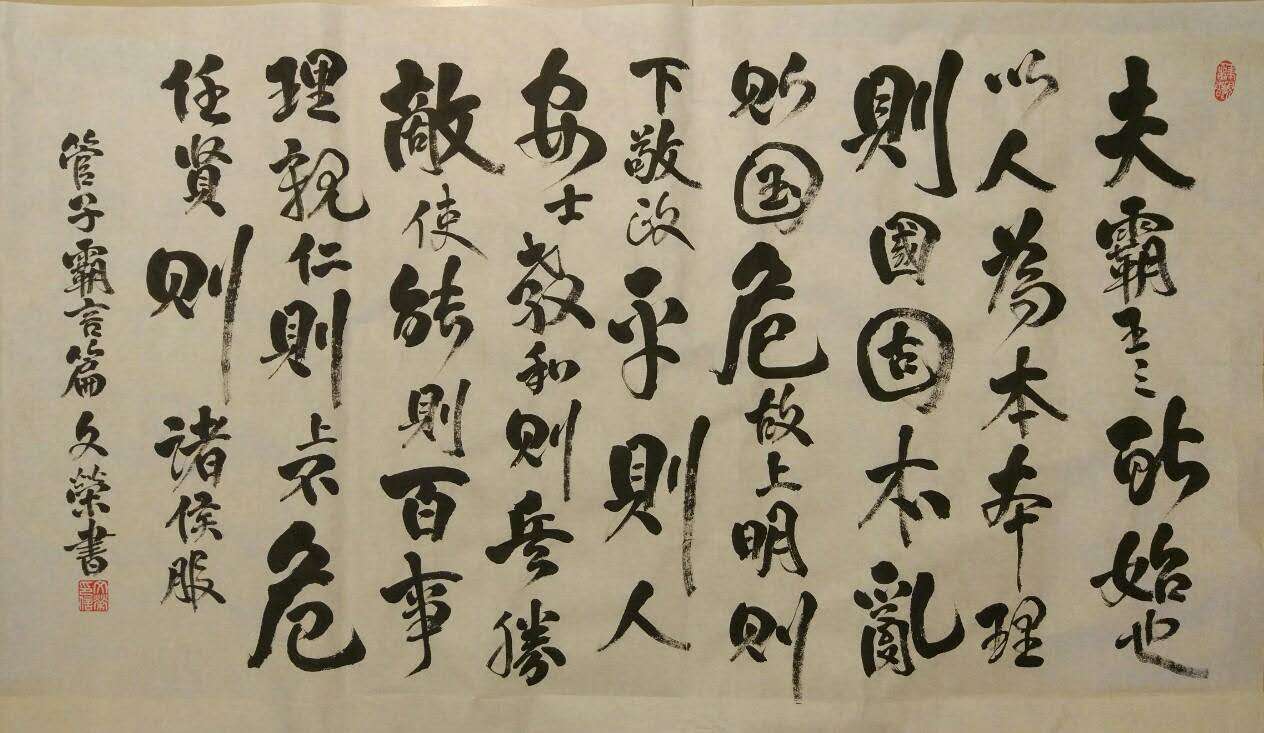 夫霸王之所始也
以人為本本理
則國固本亂
則国危故上明則
下敬政平則人
安士教和則兵勝
敵使能則百事
理親仁則上不危
任贤則諸侯服
管子霸言篇 文榮書